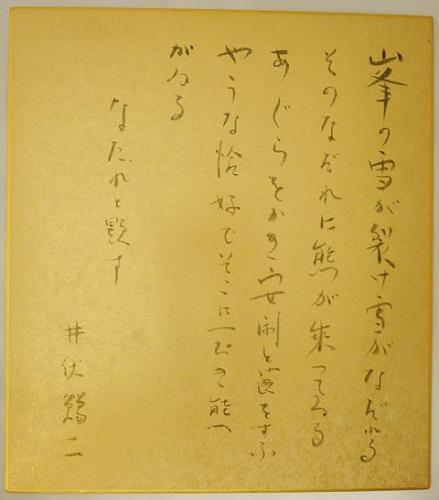 山峯の雪が裂け雪がなだれる
そのなだれに熊が乗つてゐる
あぐらをかき安閑と莨をすふ
やうな恰好でそこに一ぴき熊
がゐる
なだれと題す
井伏鱒二